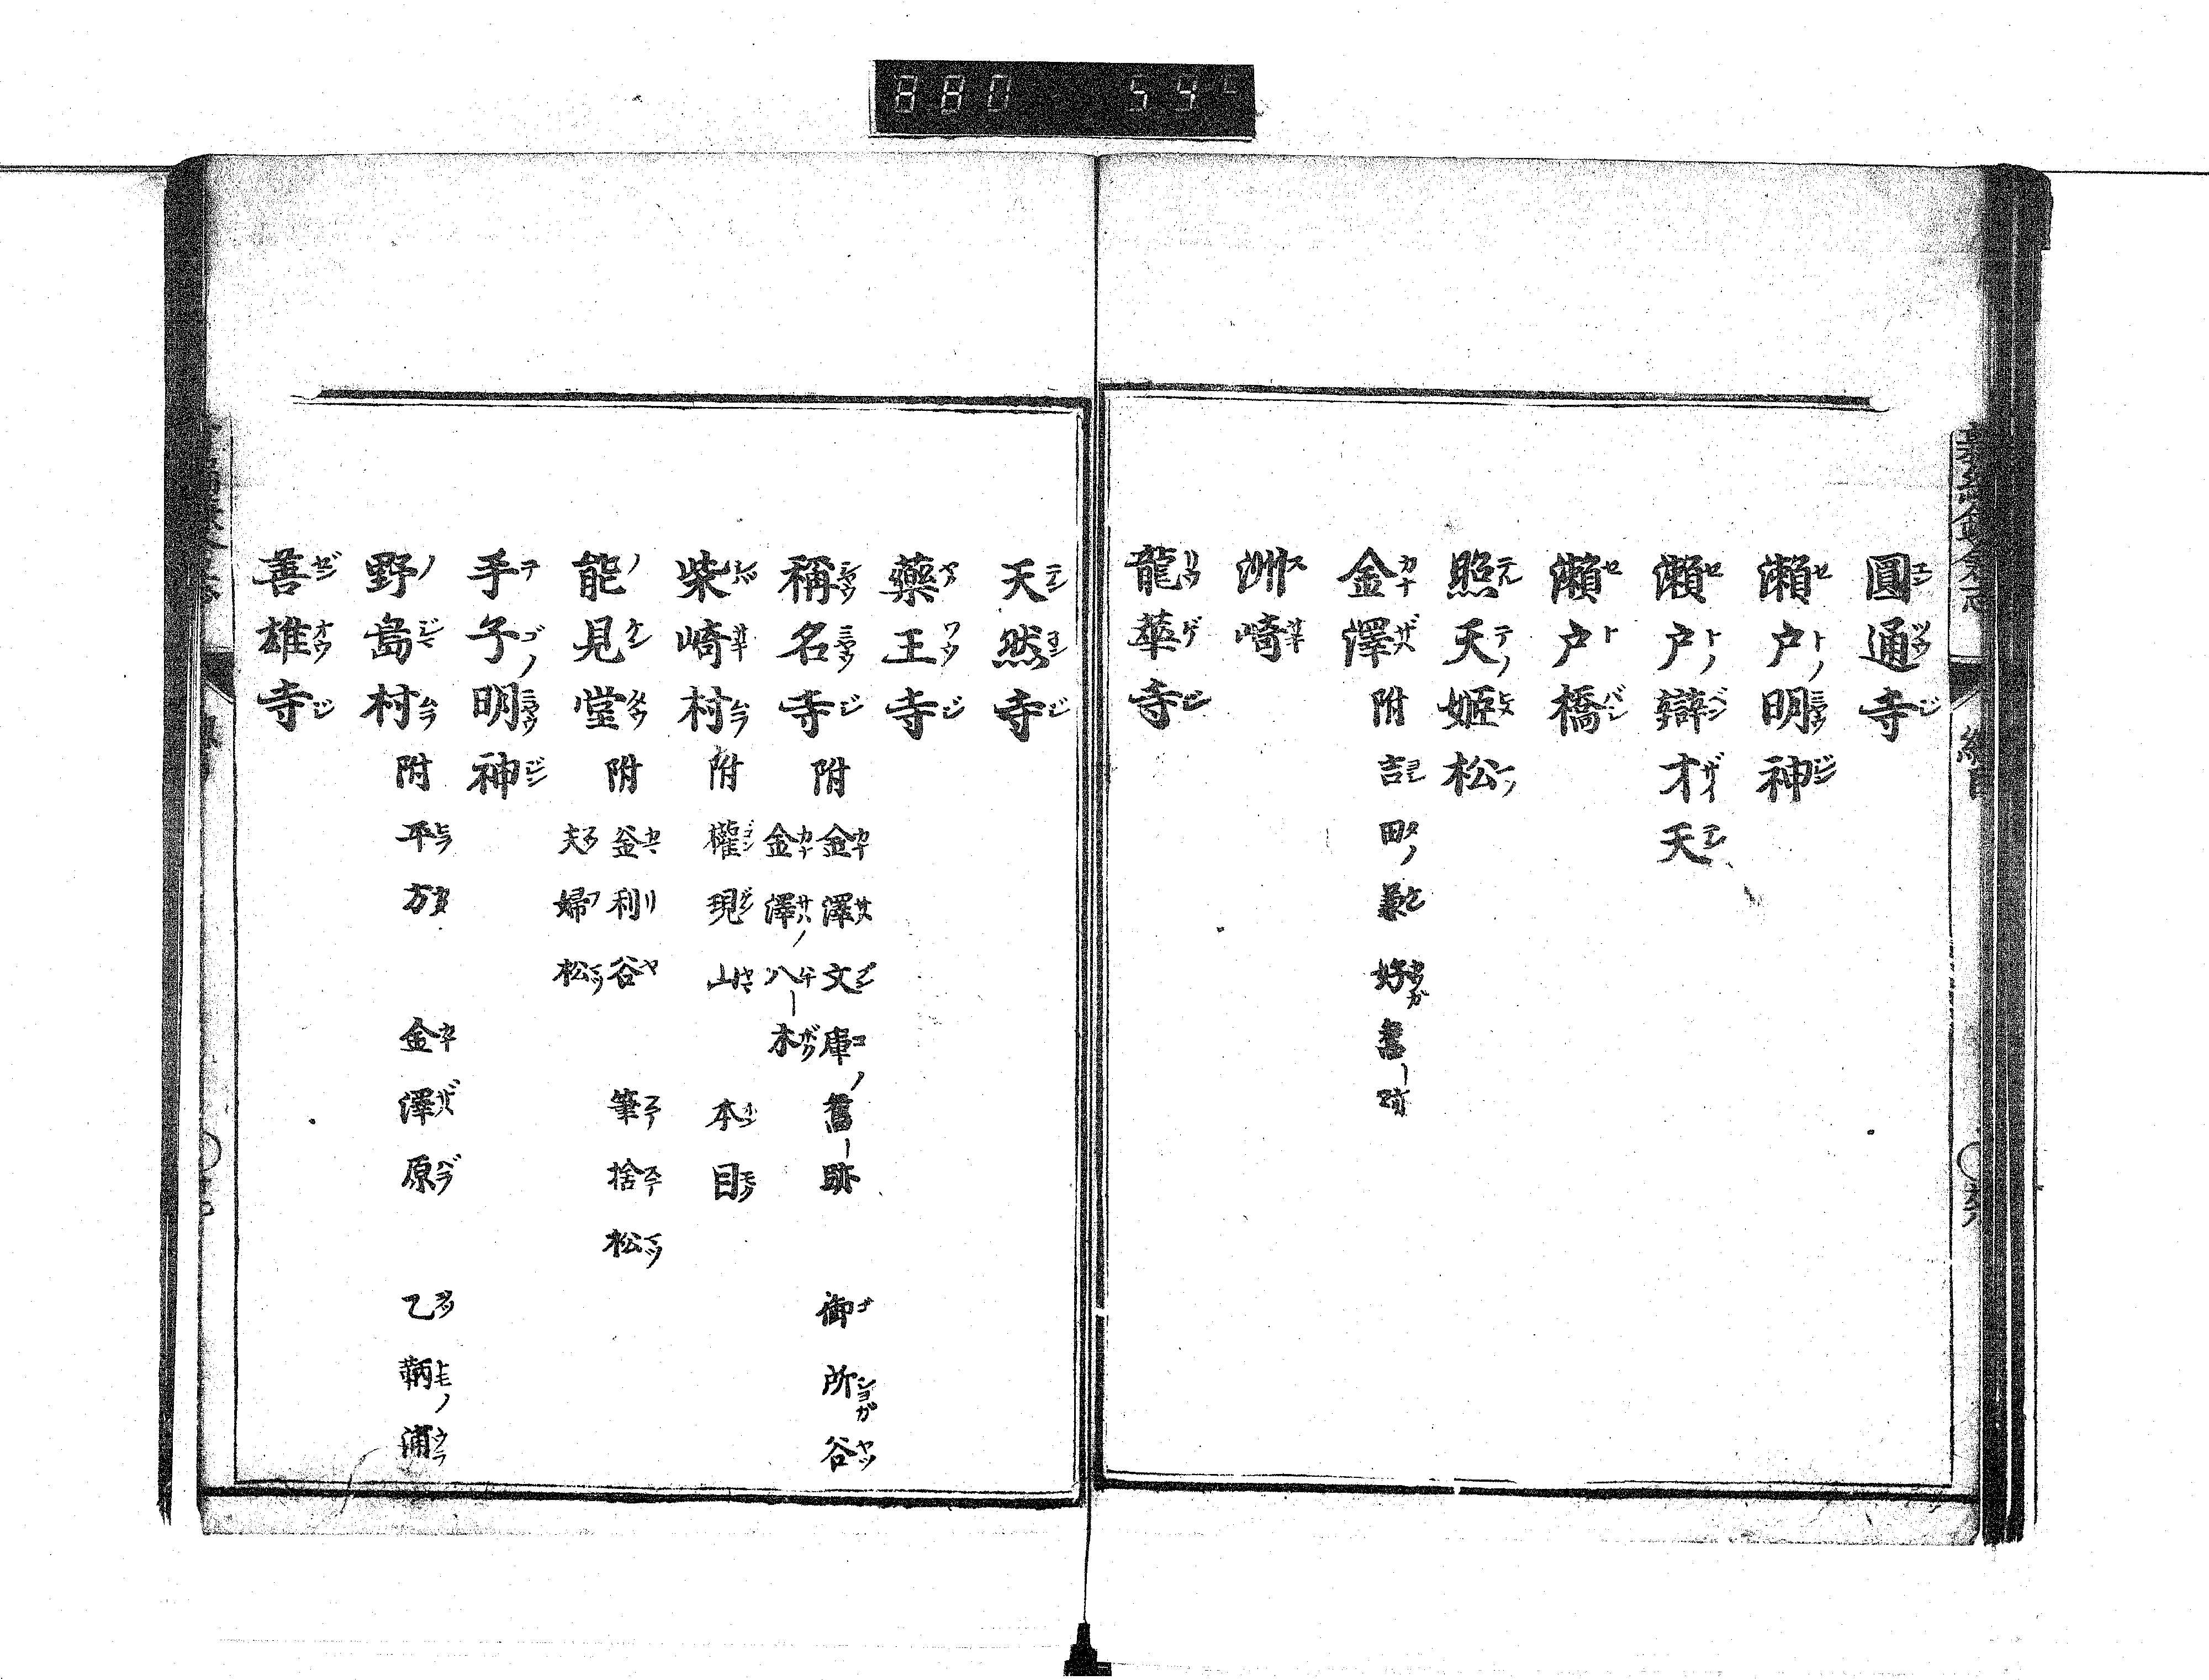 圓通寺
瀨戸明神
瀨戸辯才天
瀨戸橋
照天姬松
金澤 附 吉田兼好舊跡
洲崎
龍華寺
天然寺
藥王寺
稱名寺 附 金澤文庫舊跡 御所谷
金澤八木
柴崎村 附 權現山 本目
能見堂 附 釜利谷 筆捨松
夫婦松
手子明神
野島村 附 平方 金澤原 乙鞆浦
善雄寺